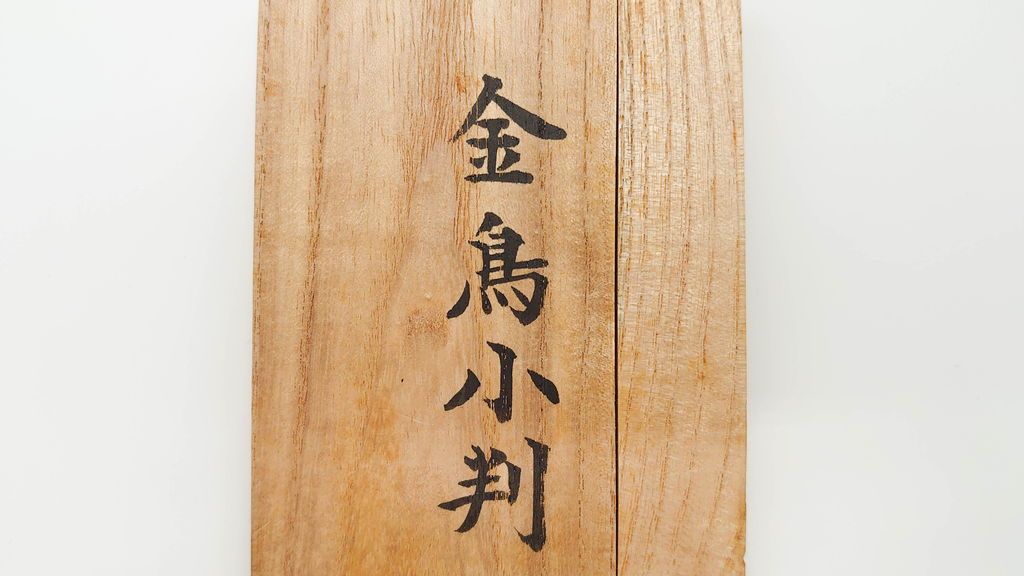 金鳥小判